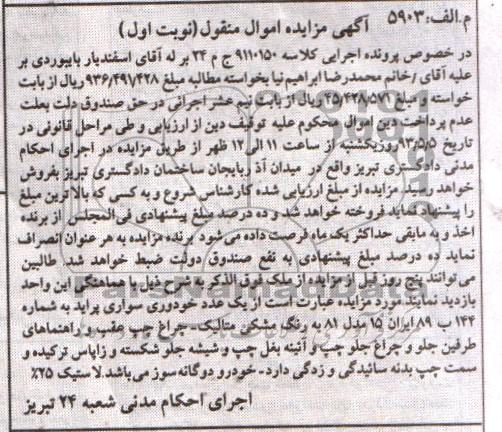 م.الف:۵۹۰۳ آگهی مزایده اموال منقول(نوبت اول)
در خصوص پرونده اجرایی کلاسه ۹۱۱۰۱۵۰ ج م ۲۴ بر له آقای اسفندیار بایبوردی بر
علیه آقای /خانم محمدرضا ابراهیم نیا بخواسته مطالبه مبلغ ۹۳۶/۴۹۷/۴۲۸ ریال از بابت
خواسته و مبلغ ریال از بابت نیم عشر اجرائی در حق صندوق دولت بعلت
عدم پرداخت دین اموال محکوم علیه توقیف دین از ارزیابی و طی مراحل قانونی در
تاریخ ۹۳/۵/۵ روز یکشنبه از ساعت ۱۱ الی ۱۲ ظهر از طریق مزایده در اجرای احکام
مدنی دادگستری تبریز واقع در میدان آذربایجان ساختمان دادگستری تبریز بفروش
خواهد رسید مزایده از مبلغ ارزیابی شده کارشناسی شروع و به کسی که بالاترین مبلغ
را پیشنهاد نماید فروخته خواهد شد و ده درصد مبلغ پیشنهادی فی المجلس از برنده
اخذ و به مابقی حداکثر یک ماه فرصت داده می شود برنده مزایده به هر عنوان انصراف
نماید ده درصد مبلغ پیشنهادی به نفع صندوق دولت ضبط خواهد شد. طالبین
می توانند پنج روز قبل از مزایده از ملک فوق الذکر به شرح ذیل با هماهنگی این واحد
بازدید نمایند مورد مزایده عبارت است از یک عدد خودوری سواری پراید به شماره
۱۴۴ ب ۸۹ ایران ۱۵ مدل ۸۱ به رنگ مشکی متالیک- چراغ چپ عقب و راهنماهای
طرفین جلو و چراغ جلو چپ و آئینه بغل چپ و شیشه جلو شکسته و زاپاس ترکیده و
سمت چپ بدنه سائیدگی و زدگی دارد- خودرو دوگانه سوز می باشد لاستیک ۲۵٪
اجرای احکام مدنی شعبه ۲۴ تبریز